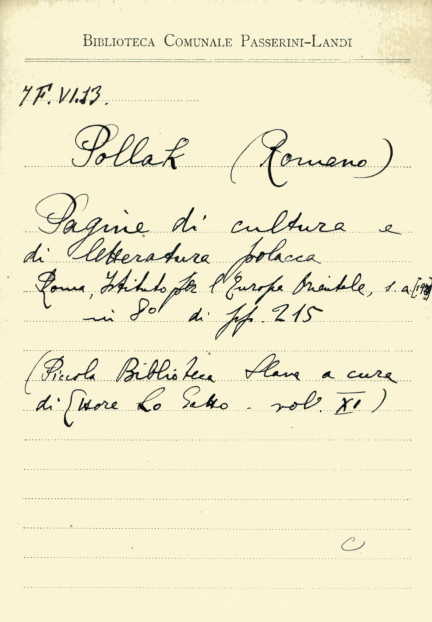 BIBLIOTECA COMUNALE PASSERINI-LANDI
7F.VI.13.
Pollak (Romano)
Pagine di cultura e
di letteratura polacca
Roma, Istituto per l'Europa Orientale, s. a.
in 8° di pp. 215
(Piccola Biblioteca Slava a cura
di Ettore Lo Gatto - vol. XI)
C